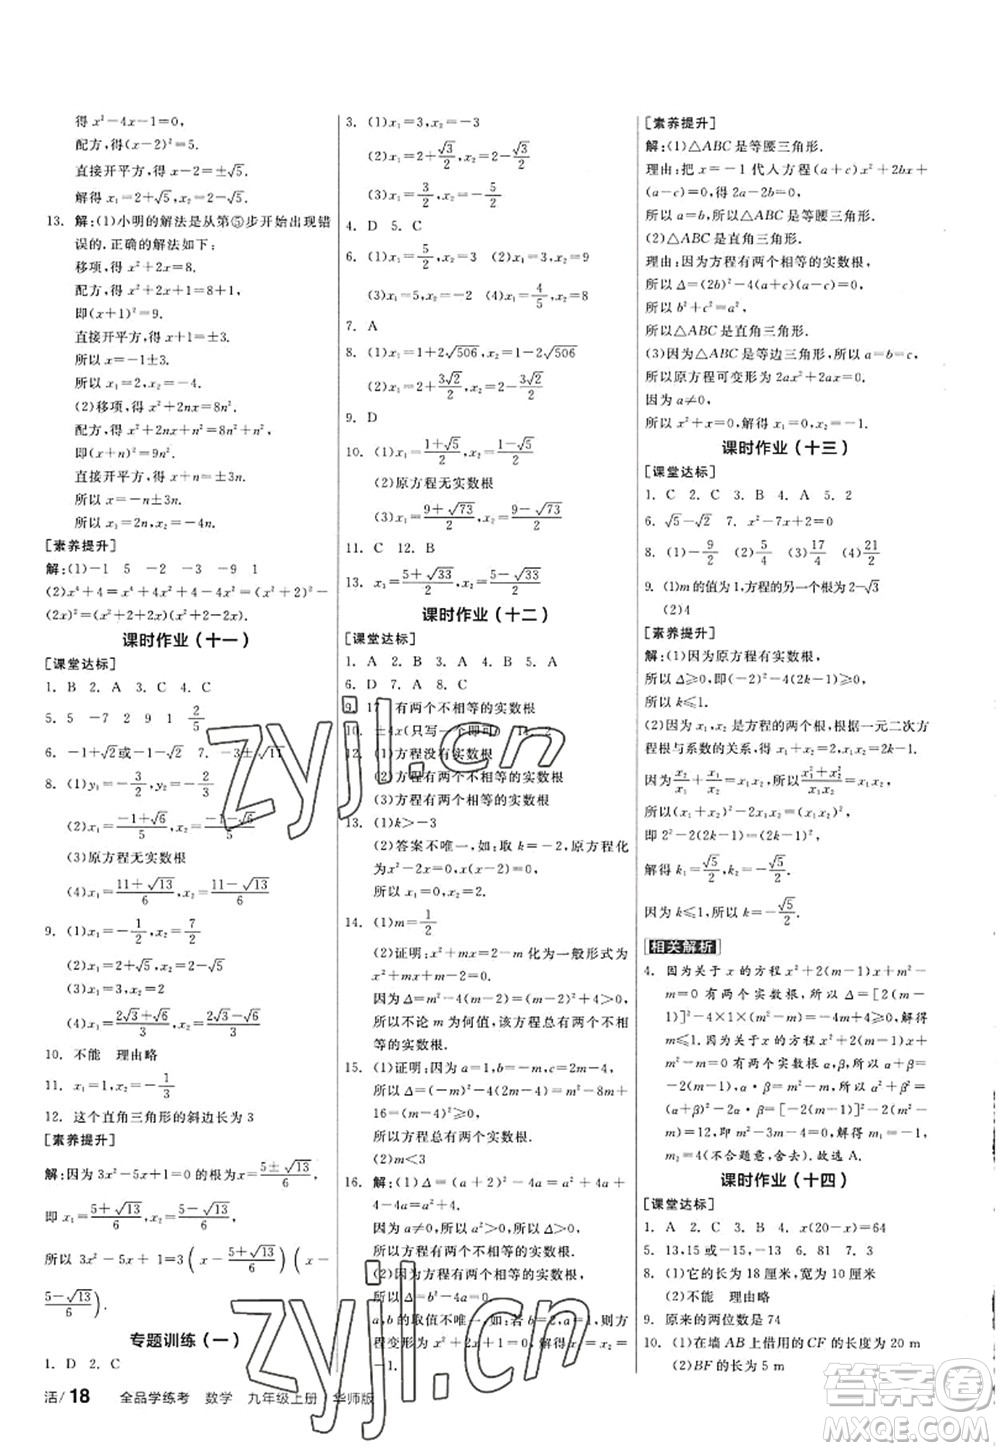 得 x²-4x-1=0,
配方,得(x-2)²=5.
直接开平方,得 x-2=±√5.
解得 x₁=2+√5,x₂=2-√5.
13. 解:(1)小明的解法是从第⑤步开始出现错
误的.正确的解法如下:
移项,得 x²+2x=8.
配方,得 x²+2x+1=8+1,
即(x+1)²=9.
直接开平方,得 x+1=±3.
所以 x=-1±3.
所以 x₁=2,x₂=-4.
(2)移项,得 x²+2nx=8n².
配方,得 x²+2nx+n²=8n²+n²,
即(x+n)²=9n².
直接开平方,得 x+n=±3n.
所以 x=-n±3n.
所以 x₁=2n,x₂=-4n.
[素养提升]
解:(1)-1 5 -3 -9 1
(2)x⁴+4=x⁴+4x²-4x²+4=(x²+2)²-
(2x)²=(x²+2+2x)(x²+2-2x).
课时作业(十一)
[课堂达标]
1. B 2. A 3. C 4. C
5. 5 -7 2 9 1 2/5
6. -1+√2或-1-√2 7. -3±√11
8. (1)y₁=-3/4,y₂=-1/4
(2)x₁=(-1+√6)/5,x₂=(-1-√6)/5
(3)原方程无实数根
(4)x₁=(11+√13)/6,x₂=(11-√13)/6
9. (1)x₁=-1/2,x₂=7/2
(2)x₁=2+√5,x₂=2-√5
(3)x₁=-1,x₂=-3
(4)x₁=(2√3+√6)/3,x₂=(2√3-√6)/3
10. 不能 理由略
11. x₁=-3,x₂=-1/3
12. 这个直角三角形的斜边长为3
[素养提升]
解:因为 3x²-5x+1=0 的根为(5±√13)/6,
即 x₁=(5+√13)/6,x₂=(5-√13)/6,
所以 3x²-5x+1=3(x-(5+√13)/6)(x-
(5-√13)/6).
专题训练(一)
1. D 2. C
3. (1)x₁=x₂=-3
(2)x₁=2+√3/2,x₂=2-√3/2
(3)x₁=√3/2,x₂=-√3/2
4. D 5. C
6. (1)x₁=0,x₂=5/2 (2)x₁=x₂=3
(3)x₁=4,x₂=-2 (4)x₁=4/5,x₂=8
7. A
8. (1)x₁=1+2√506,x₂=1-2√506
(2)x₁=2+3√2/2,x₂=2-3√2/2
9. D
10. (1)x₁=(1+√5)/2,x₂=(1-√5)/2
(2)原方程无实数根
(3)x₁=(9+√73)/2,x₂=(9-√73)/2
11. C 12. B
13. x₁=(5+√33)/2,x₂=(5-√33)/2
课时作业(十二)
[课堂达标]
1. A 2. B 3. A 4. A 5. B
6. D 7. A 8. D
9. 17 有两个不相等的实数根
10. ±4x(只写一个即可) 11. 2
12. (1)方程没有实数根
(2)方程有两个不相等的实数根
(3)方程有两个不相等的实数根
13. (1)k>-3
(2)答案不唯一,如:取 k=-2,原方程化
为x²-2x=0,解得 x₁=0,x₂=2.
14. (1)m=1/2
(2)证明:x²+mx=2-m 化为一般形式为
x²+mx+m-2=0.
因为 Δ=m²-4(m-2)=(m-2)²+4>0,
所以不论 m 为何值,该方程总有两个不相
等的实数根.
15. (1)证明:因为 a=1,b=-m,c=2m-4,
所以 Δ=(-m)²-4(2m-4)=m²-8m+
16=(m-4)²≥0,
所以方程总有两个实数根.
(2)m<3
16. 解:(1)Δ=(a+2)²-4a=a²+4a+
4-4a=a²+4.
因为 a²>0,所以 a²+4>0,即 Δ>0,
所以原方程有两个不相等的实数根.
(2)根据题意,得 Δ=b²-4a=0,
即 b²=4a,
a,b的取值不唯一,如取 a=1,b=2,则原
方程变形为 x²+2x+1=0,解得 x₁=x₂=
-1.
[素养提升]
解:(1)△ABC 是等腰三角形.
理由:把 x=-1 代入方程(a+c)x²+2bx+
(a-c)=0,得 2a-2b=0,
所以 a=b,所以△ABC 是等腰三角形.
(2)△ABC 是直角三角形.
理由:因为方程有两个相等的实数根,
所以 Δ=(2b)²-4(a+c)(a-c)=0,
所以 b²+c²=a²,
所以△ABC 是直角三角形.
(3)因为△ABC 是等边三角形,所以 a=b=c,
所以原方程可变形为 2ax²+2ax=0.
因为 a≠0,
所以 x²+x=0,解得 x₁=0,x₂=-1.
课时作业(十三)
[课堂达标]
1. C 2. C 3. D 4. A 5. 2
6. √5-√2 7. x²-7x+12=0
8. (1)-9/2 (2)5/4 (3)17/4 (4)21/2
9. (1)m 的值为 1,方程的另一个根为2-√3
(2)4
[素养提升]
解:(1)因为原方程有实数根,
所以 Δ≥0,即(-2)²-4(2k-1)≥0,
所以 k≤1.
(2)因为 x₁,x₂ 是方程的两个根,根据一元二次
方程根与系数的关系,得 x₁+x₂=2,x₁x₂=2k-1.
因为x₂/x₁+x₁/x₂=x₁x₂,所以(x₁²+x₂²)/(x₁x₂)=x₁x₂,
所以(x₁+x₂)²-2x₁x₂=(x₁x₂)²,
即 2²-2(2k-1)=(2k-1)²,
解得 k₁=√5/2,k₂=-√5/2.
因为 k≤1,所以 k=-√5/2.
[相关解析]
4. 因为关于 x 的方程 x²+2(m-1)x+m²-
m=0 有两个实数根,所以 Δ=[2(m-
1)]²-4×1×(m²-m)=-4m+4≥0,解得
m≤1.因为方程的两个实数根 α,β,所以α+β=
-2(m-1),α·β=m²-m,所以α²+β²=
(α+β)²-2α·β=[-2(m-1)]²-
2(m²-m)=12,解得 m₁=-1,
m₂=4(不合题意,舍去).故选 A.
课时作业(十四)
[课堂达标]
1. A 2. C 3. C 4. x(20-x)=64
5. 13,15或-15,-13 6. 81 7. 3
8. (1)它的长为 18 厘米,宽为 10 厘米
(2)不能 理由略
9. 原来的两位数是 74
10. (1)在墙 AB 上借用的 CF 的长度为 20 m
(2)BF 的长为 5 m
活/18 全品学练考 数学 九年级上册 华师版
zyjl.cn
zyjl.cn
答案圈
MXQE.COM